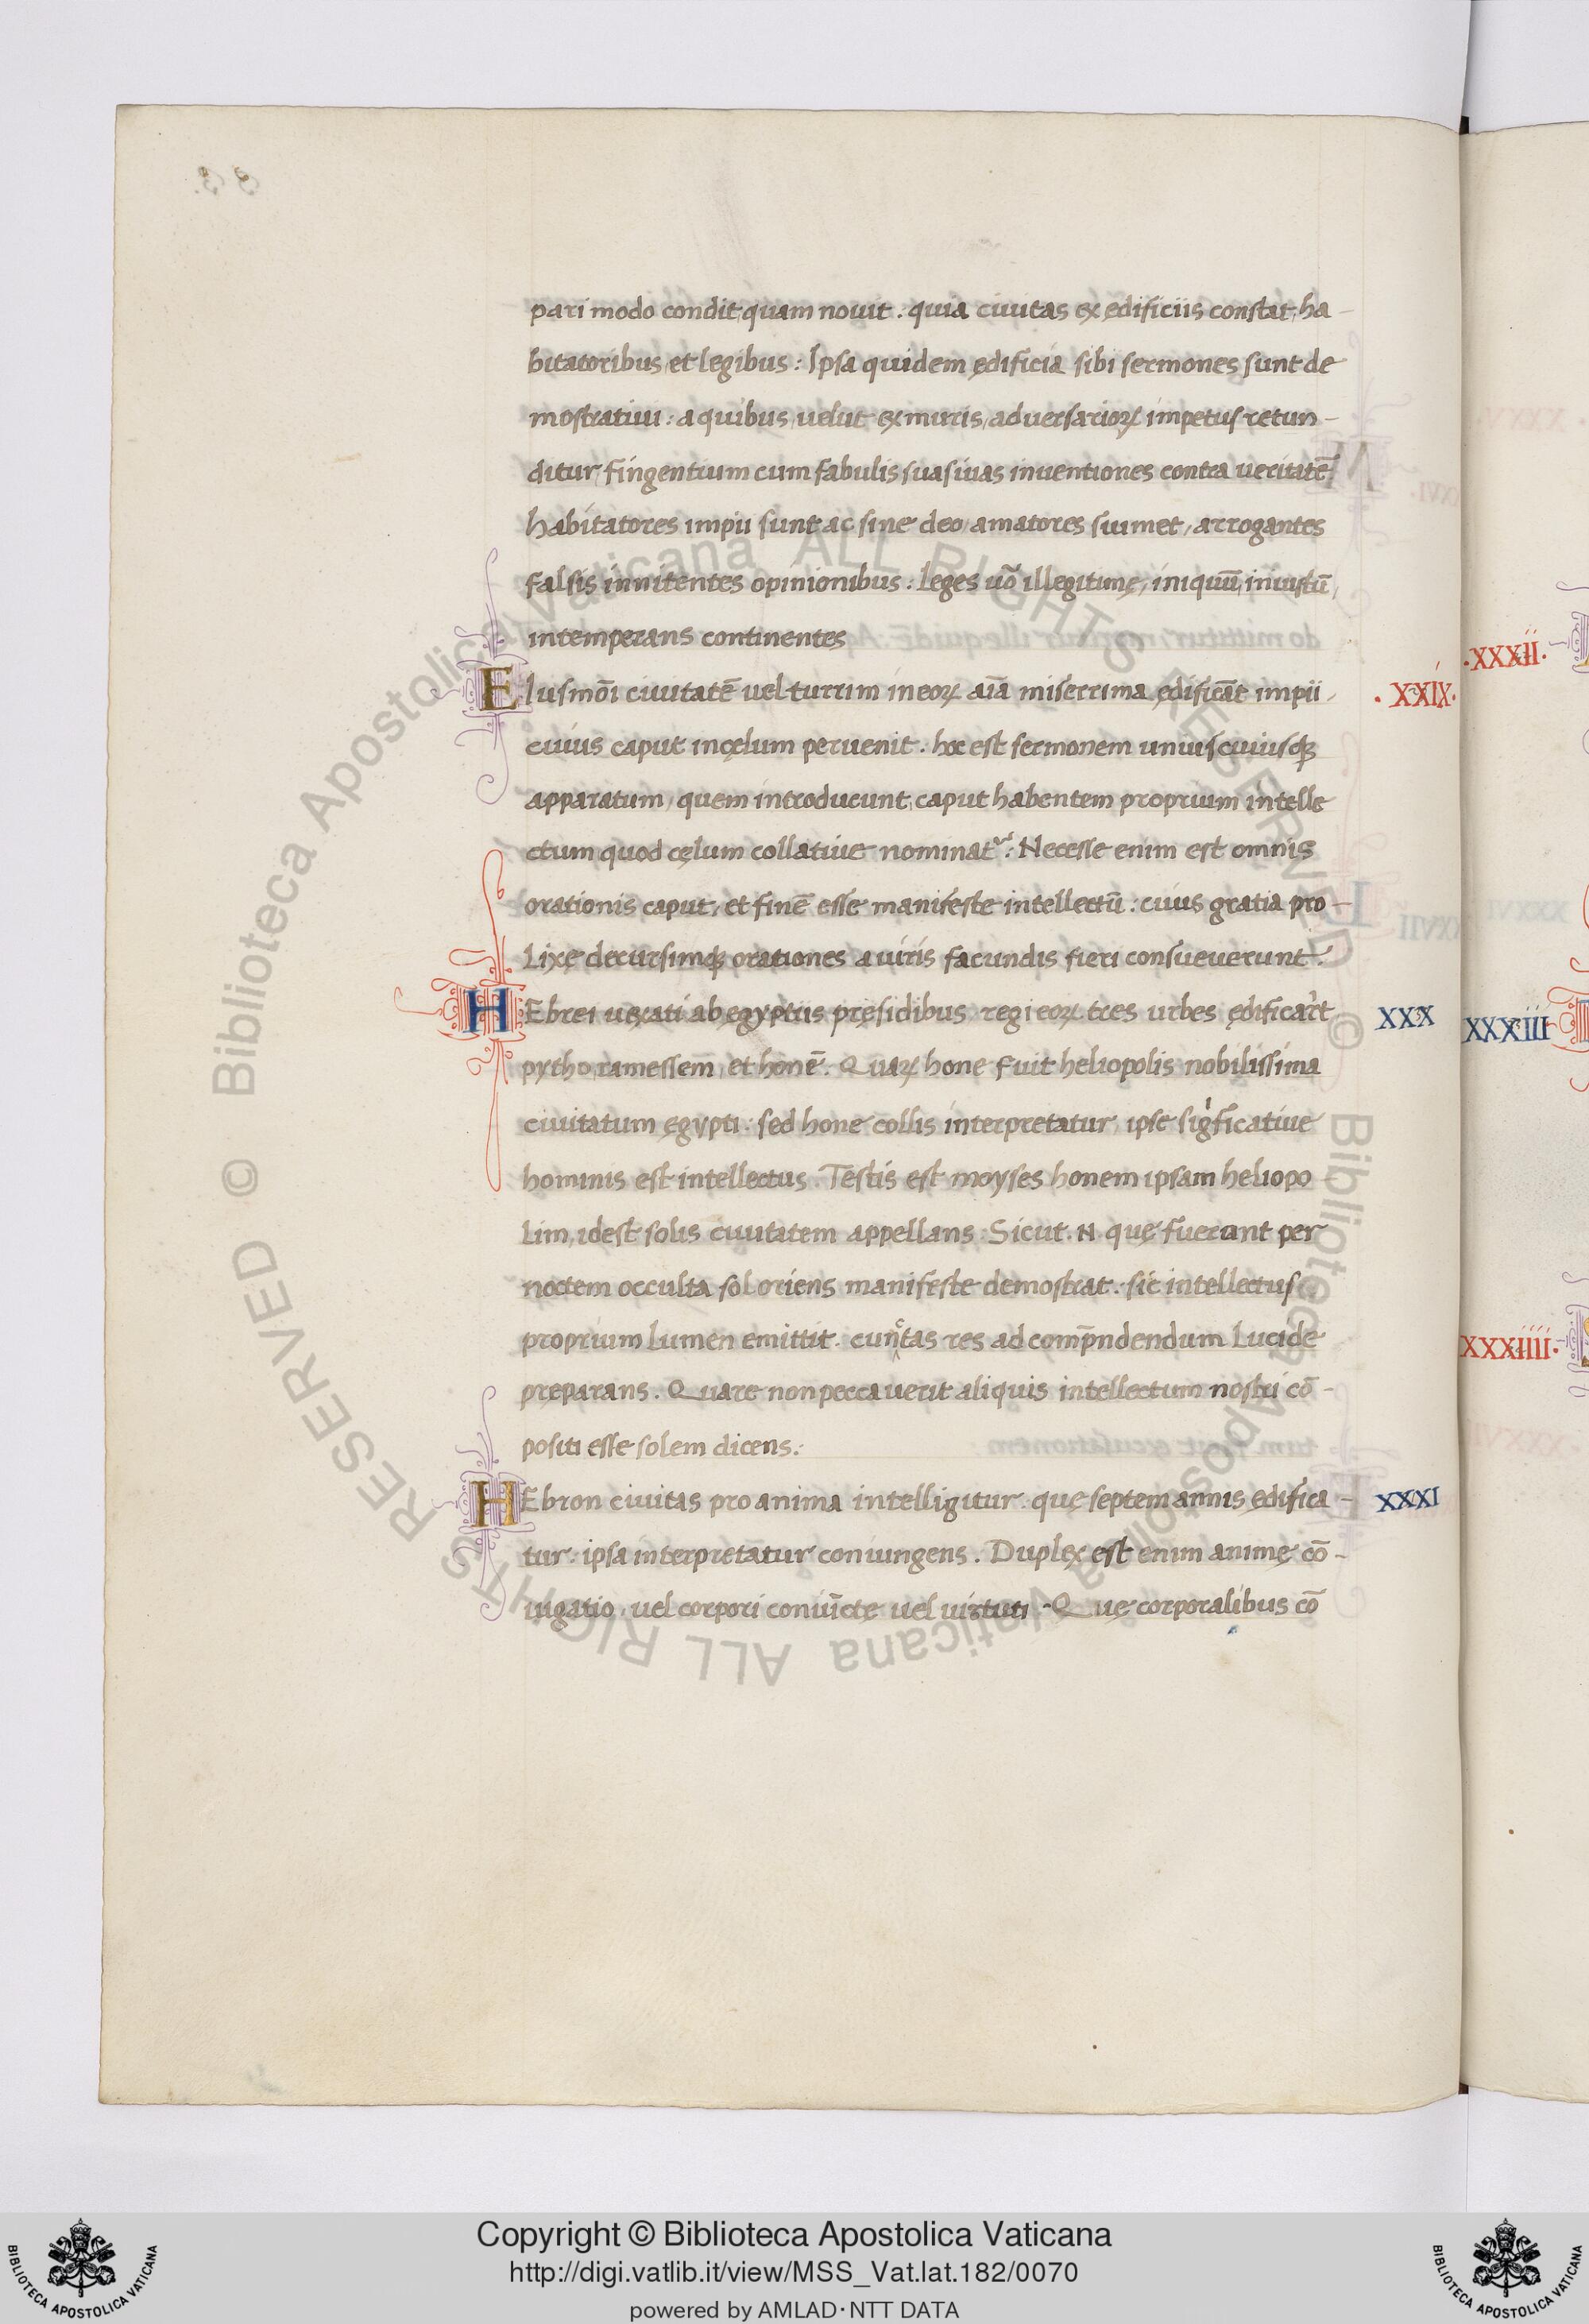 pari modo condit, quam novit. quia civitas ex edificiis constat, ha-
bitatoribus, et legibus: Ipsa quidem ędificia sibi sermones sunt de
mostrativi: a quibus, velut ex muris, adversarioꝝ impetus retun-
ditur fingentium cum fabulis suasivas inventiones contra veritatē
habitatores impii sunt ac sine deo, amatores suimet, arrogantes
falsis innitentes opinionibus: leges uō illegitimę, iniquū, iniustū,
intemperans continentes
.XXXII.
EIusmōi civitatē vel turrim in eoꝝ aīa miserrima ędificāt impii,
.XXIX.
cuius caput in cęlum pervenit. hoc est sermonem uniuscuiusqꝫ
apparatum, quem introducunt, caput habentem proprium intelle
ctum quod cęlum collative nominatᵘʳ: Necesse enim est omnis
orationis caput, et finē esse manifeste intellectū: cuius gratia pro-
lixe decursimqꝫ orationes a viris facundis fieri consueverunt.
HEbrei vexati ab egyptiis pręsidibus regi eoꝝ tres urbes ędificarᷓt
XXX
XXXIII
pytho, ramessem, et honē. Quaꝝ hone fuit heliopolis nobilissima
civitatum ęgypti: sed hone collis interpretatur, ipse sigͥficative
hominis est intellectus. Testis est moyses honem ipsam heliopo
lim, idest solis civitatem appellans. Sicut .N. quę fuerant per
noctem occulta sol oriens manifeste demostrat. sic intellectus
proprium lumen emittit. cunᶜtas res ad comp̄ndendum lucide
XXXIIII.
preparans. Quare non peccaverit aliquis intellectum nostri cō-
positi esse solem dicens:
HEbron civitas pro anima intelligitur. quę septem annis ędifica-
XXXI
tur: ipsa interpretatur coniungens. Duplex est enim animę cō-
iugatio, vel corpori coniūcte vel virtuti. Quę corporalibus cō
Biblioteca Apostolica Vaticana ALL RIGHTS RESERVED ©
Biblioteca Apostolica Vaticana ALL RIGHTS RESERVED ©
Copyright © Biblioteca Apostolica Vaticana
http://digi.vatlib.it/view/MSS_Vat.lat.182/0070
powered by AMLAD·NTT DATA
BIBLIOTECA APOSTOLICA VATICANA
BIBLIOTECA APOSTOLICA VATICANA